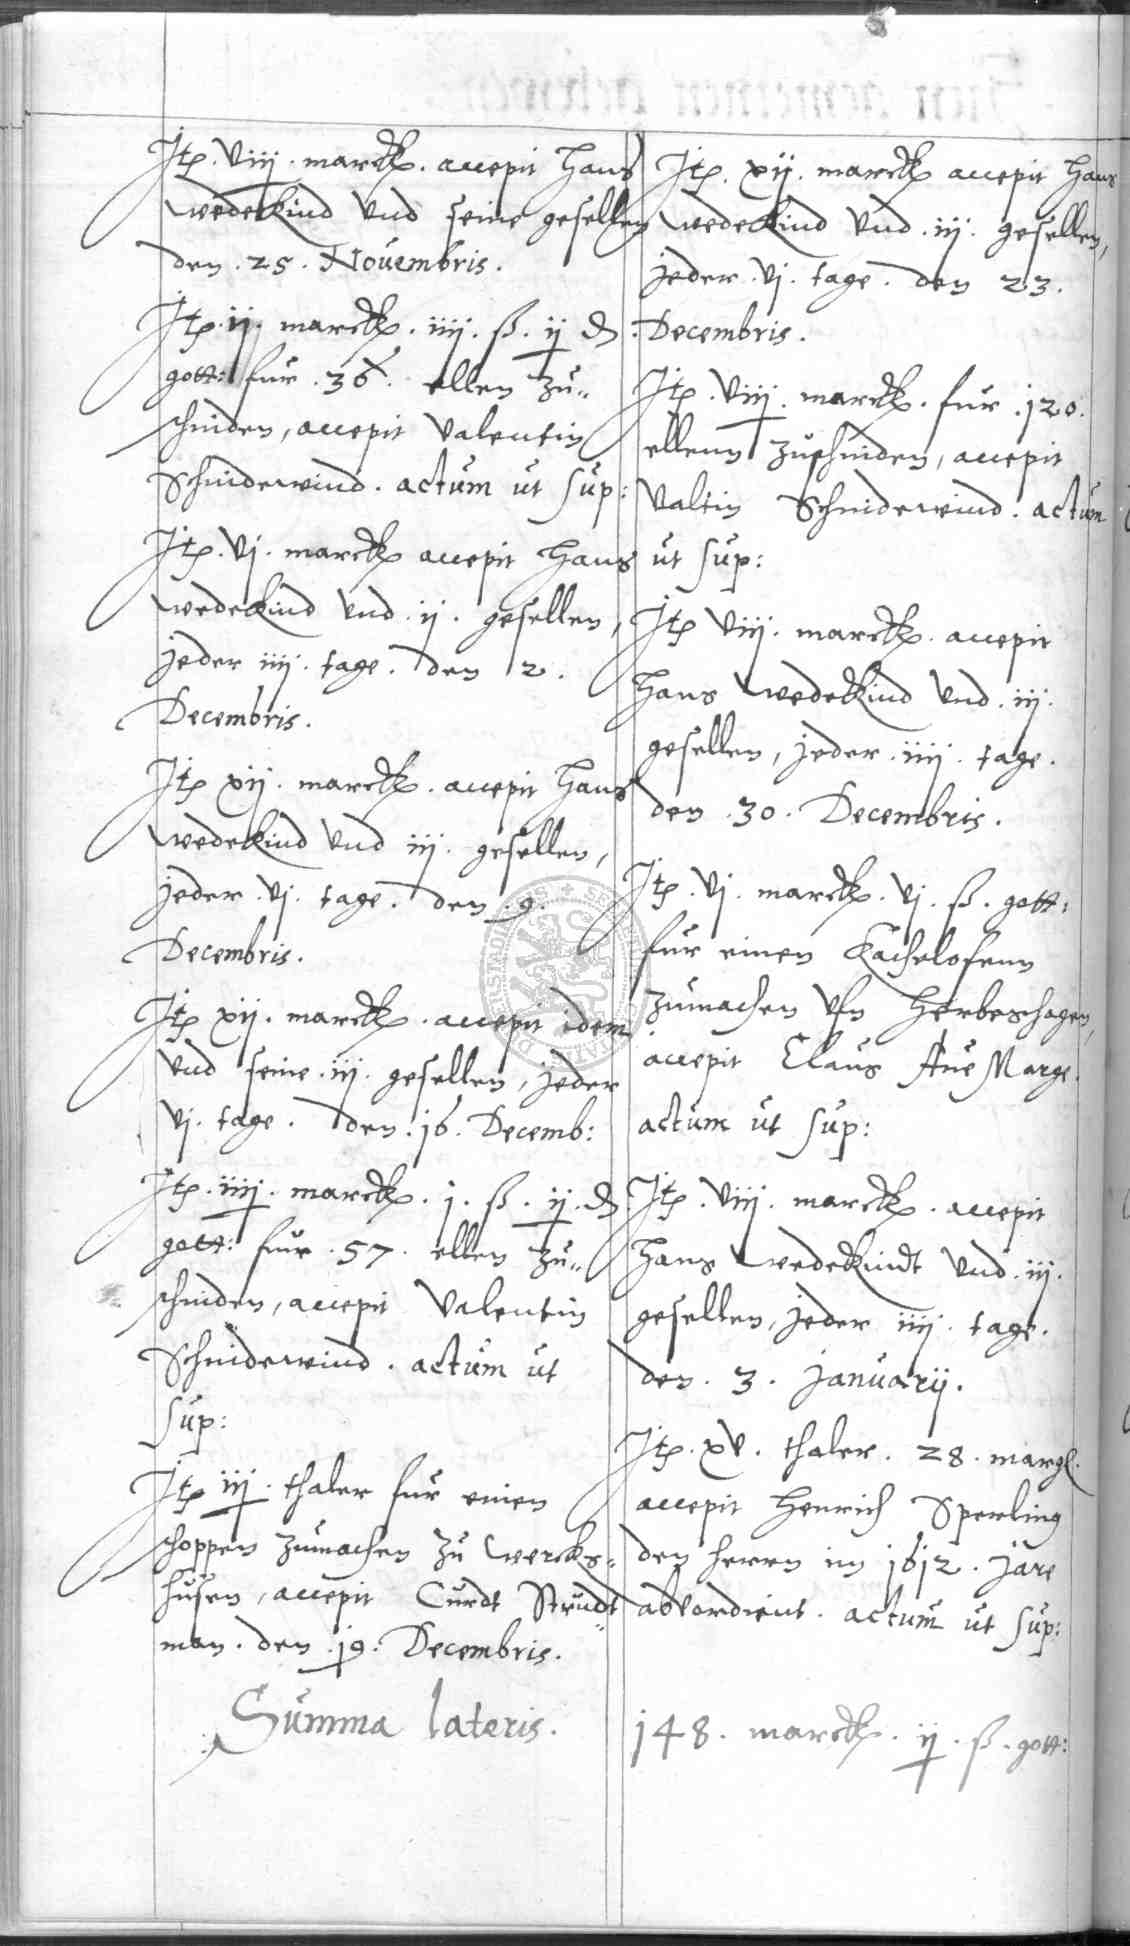 Jtem. viij. marck. accepit Hans
wedekind vnd seine gesellen
den. 25. Nouembris.
Jtem. ij. marck. iiij. ß. ij d
gott: fur. 36. ellen zu„
schniden, accepit Valentin
Schniderwind. actum ut sup:
Jtem. vj. marck accepit Hans
wedekind vnd. ij. gesellen,
jeder iiij. tage. den 2.
Decembris.
Jtem xij. marck. accepit Hans
wedekind vnd iij. gesellen,
jeder. vj. tage. den. 9.
Decembris.
Jtem xij. marck. accepit idem
vnd seine. iij. gesellen, jeder
vj. tage. den. 16. Decemb:
Jtem. iiij. marck. j. ß. ij. d
gott: fur. 57. ellen zu„
schniden, accepit Valentin
Schniderwind. actum ut
sup:
Jtem iij. thaler fur einen
schoppen zumachen zu wercks„
husen, accepit Curdt Strudt„
man. den. 19. Decembris.
Summa lateris.
Jtem. xij. marck accepit Hans
wedekind vnd. iij. gesellen,
jeder. vj. tage. den 23.
Decembris.
Jtem. viij. marck. fur. 120.
ellenn zuschniden, accepit
Valtin Schniderwind. actum
ut sup:
Jtem viij. marck. accepit
Hans wedekind vnd. iij.
gesellen, jeder. iiij. tage.
den. 30. Decembris.
Jtem. vj. marck. vj. ß. gott:
fur einen Kachelofenn
zumachen vfn Herbershagen,
accepit Claus
actum ut sup:
Jtem. viij. marck. accepit
Hans wedekindt vnd. iij.
gesellen, jeder iiij. tage.
den. 3. januarij.
Jtem. xv. thaler. 28. margl.
accepit Henrich Sperling
den herrn im 1612. jare
abverdient. actum ut sup:
148. marck. ij. ß. gott: